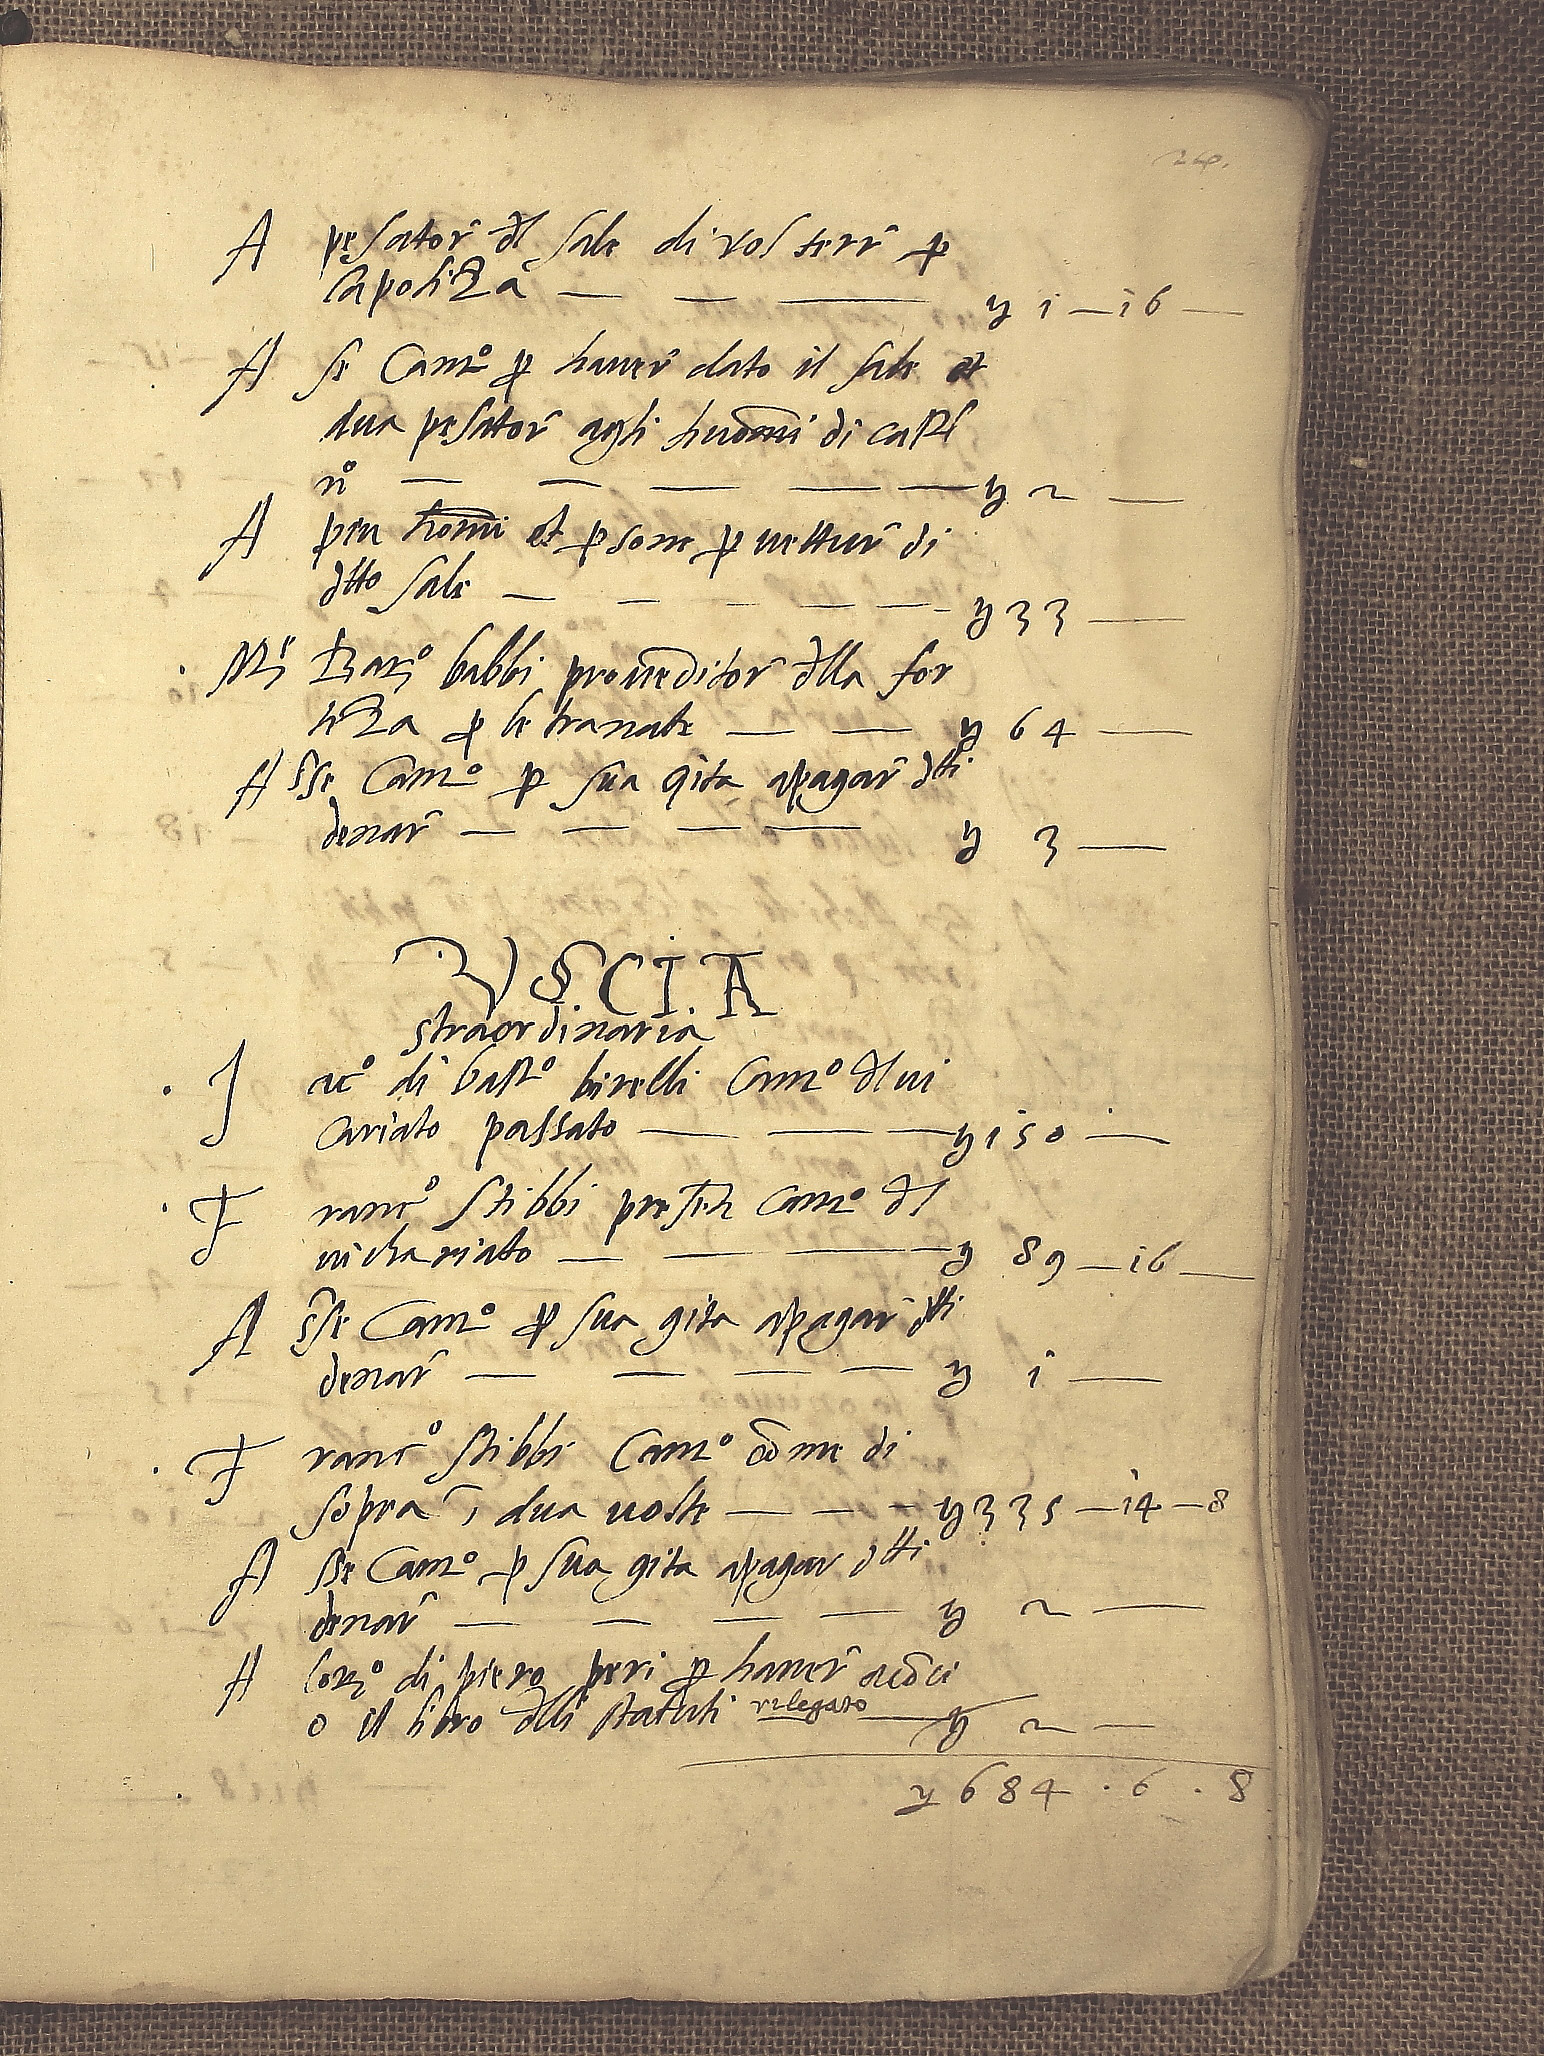 24.
A pesator̃ dl sale di volterr̃ p
la poliza — — — y 1 — 16 —
A se Cam.º p hauer̃ dato il sale et
dua pesator̃ agli huomi di castl
nº — — — — — y 2 —
A piu homi et psone p uettur̃ di
dtto sale — — — — — — y 33 —
Mr̃ Barº babbi proueditor̃ dlla for
teza p le tranate — — y 64 —
A sse Cam.º p sua gita apagar̃ dtti
denar̃ — — — — y 3 —
VSCITA
straordinaria
J acº di bastº birelli Cam.º dl ui
cariato passato — — — y 150 —
F rancº stibbi presen Cam.º dl
uichariato — — — — y 89 — 16 —
A sse Cam.º p sua gita apagar̃ dtti
denar̃ — — — — y 1 —
F rancº stibbi Cam.º come di
sopra ĩ dua uolte — — — y 335 — 14 — 8
A sse Cam.º p sua gita apagar dtti
denar̃ — — — — y 2 —
A lorº di piero peri p hauer̃ aconci
o il libro dlli statuti rilegato — y 2 —
y 684 . 6 . 8